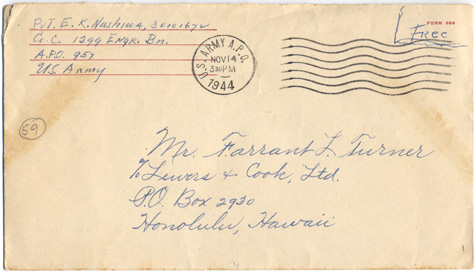 Pvt. E. K. Nashiwa, 30101672
Co. C. 1399 Engr. Bn.
A.P.O. 957
U.S. Army
U.S. ARMY A.P.O.
NOV 14
3 30 PM
1944
FORM
Free
59
Mr. Farrant L. Turner
℅ Lewers & Cook, Ltd.
P.O. Box 2930
Honolulu, Hawaii